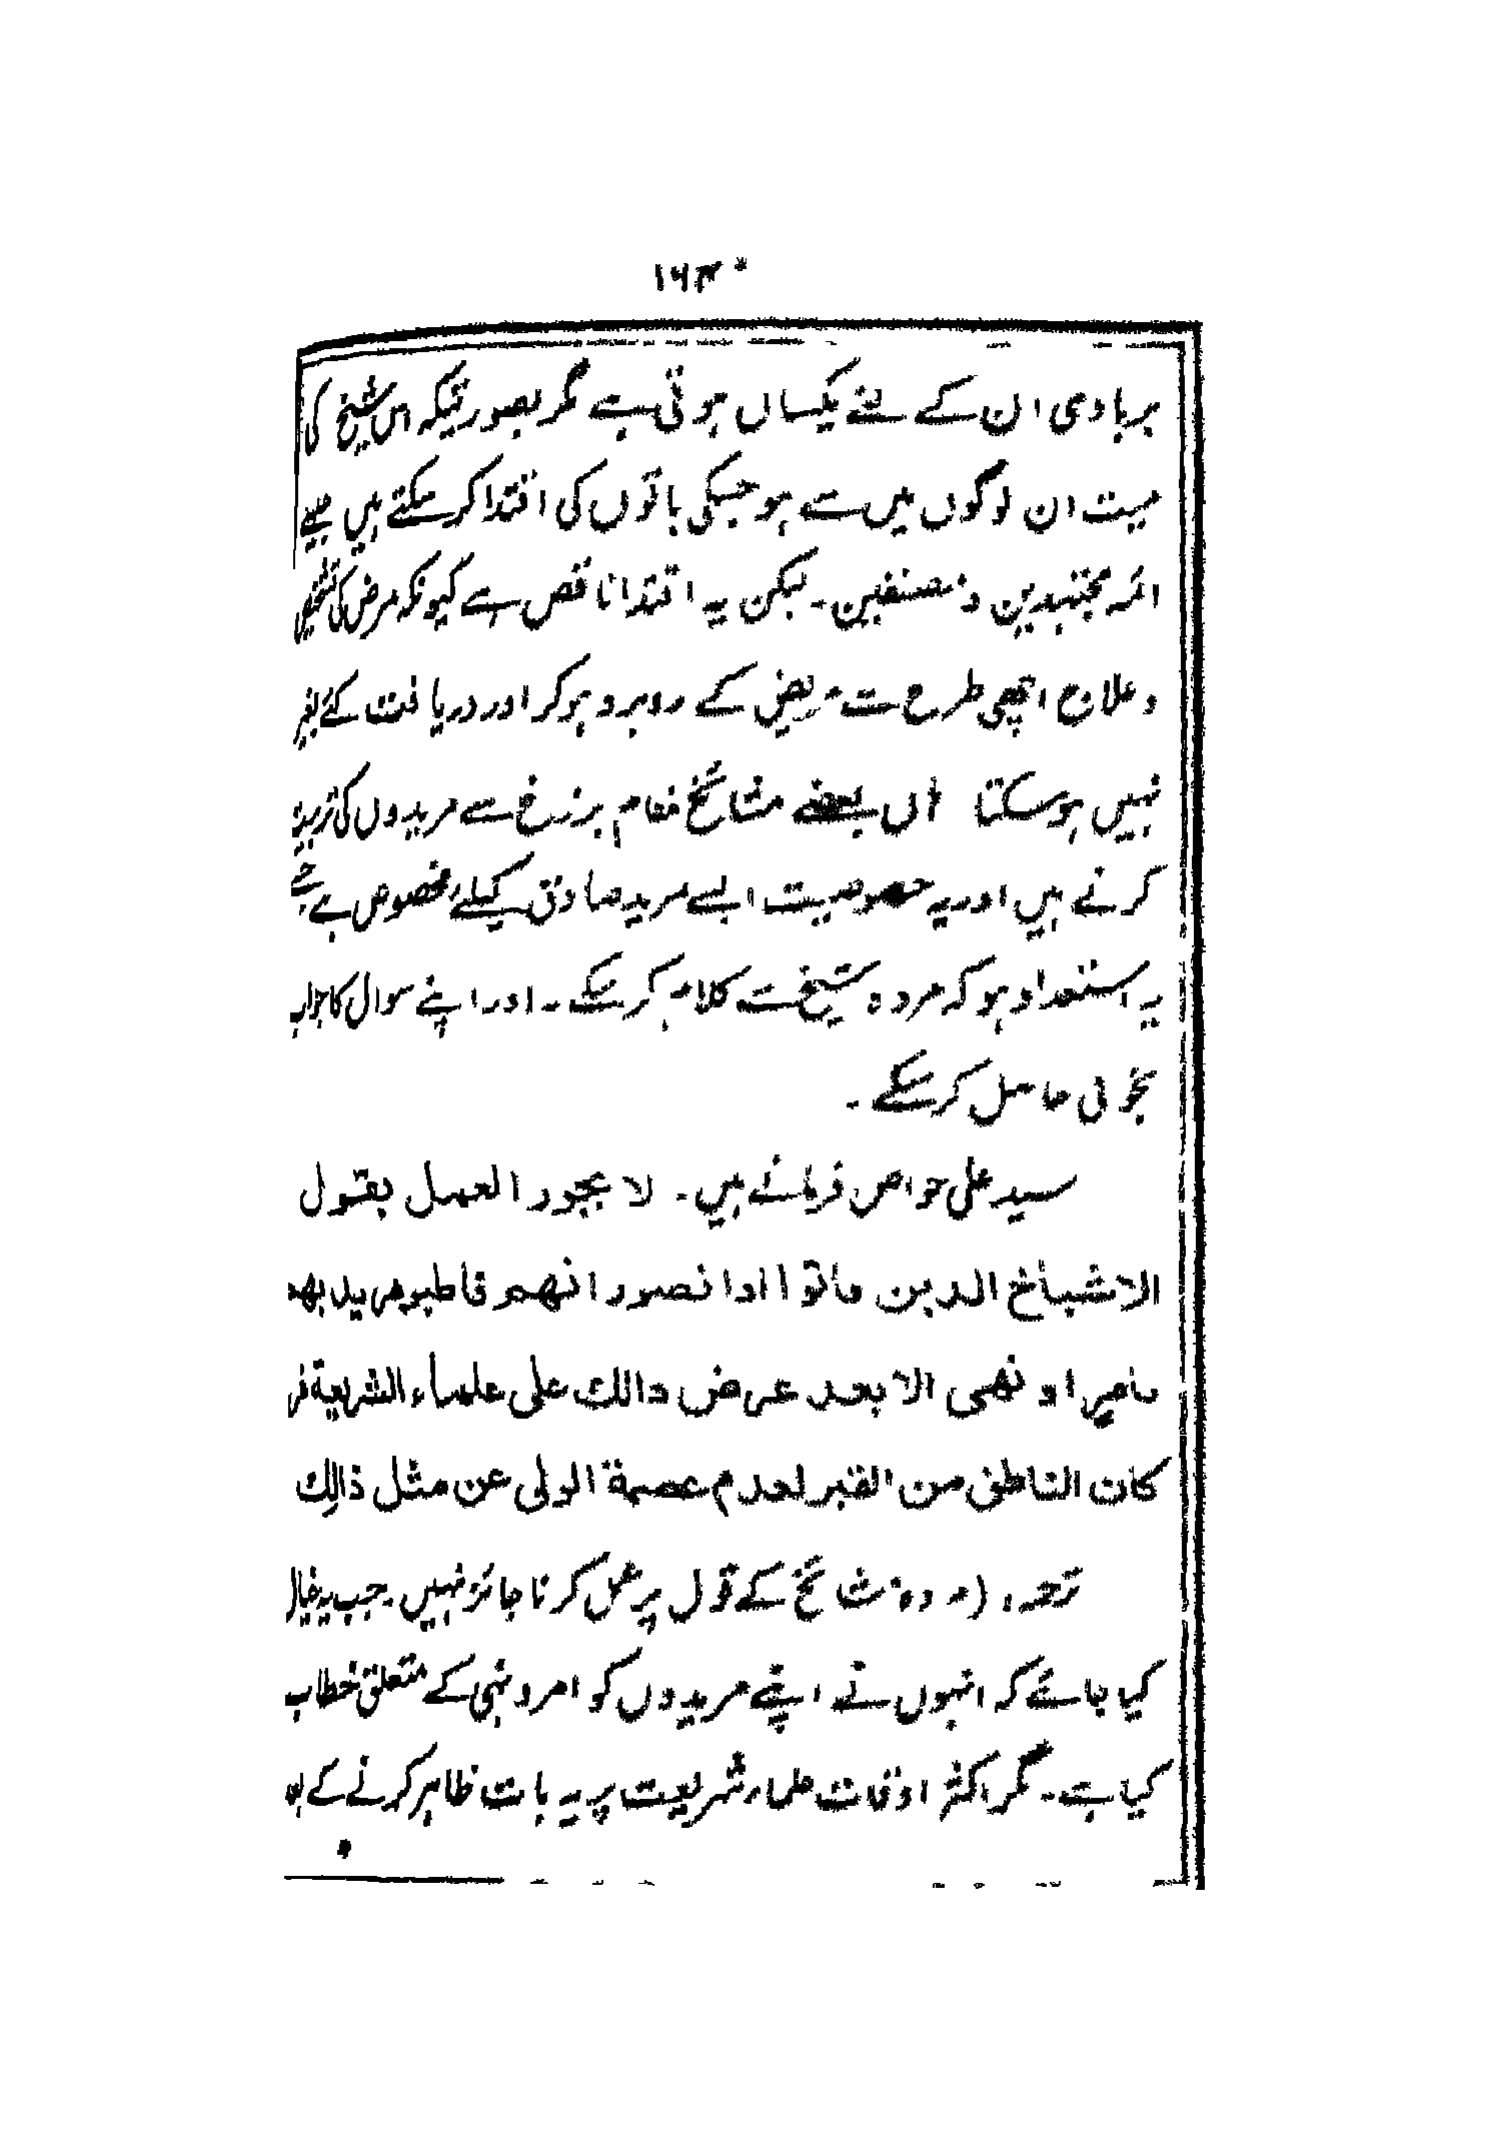 ۱۶۳
بربادی ان کے لئے یکساں ہوتی ہے مگر بصورتیکہ اس شیخ کی
میت ان لوگوں میں سے ہو جسکی باتوں کی اقتدا کر سکتے ہیں جیسے
ائمہ مجتہدین و مصنفین۔ لیکن یہ اقتدا ناقص ہے کیونکہ مرض کی تشخیص
و علاج اچھی طرح سے مریض کے روبرو ہوکر اور دریافت کئے بغیر
نہیں ہوسکتا ہاں بعضے مشائخ مقام برزخ سے مریدوں کی تربیت
کرتے ہیں اور یہ خصوصیت ایسے مرید صادق کیلئے مخصوص ہے جسے
یہ استعداد ہو کہ مردہ شیخ سے کلام کر سکے۔ اور اپنے سوال کا جواب
بخوبی حاصل کر سکے۔
سید علی خواص فرماتے ہیں۔ لا يجوز العمل بقول
الاشياخ الذين ماتوا اذا تصور انهم خاطبو مريديهم
بامر او نهى الا بعد عرض ذالك على علماء الشريعة
كان الناطق من القبر لعدم عصمة الولى عن مثل ذالك
ترجمہ (مردہ مشائخ کے قول پر عمل کرنا جائز نہیں۔ جب یہ خیال
کیا جائے کہ انہوں نے اپنے مریدوں کو امر و نہی کے متعلق خطاب
کیا ہے۔ مگر اکثر اوقات علماء شریعت پر یہ بات ظاہر کرنے کے